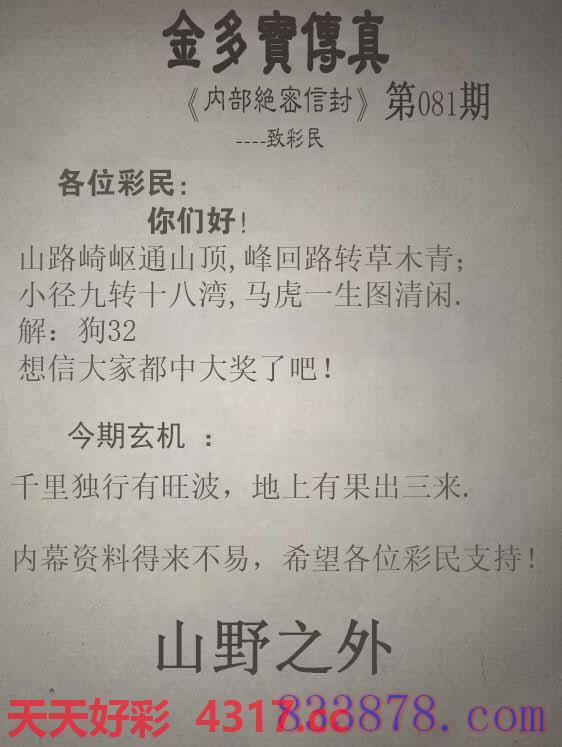 金多寶傳真
《内部絕密信封》第081期
----致彩民
各位彩民:
你们好!
山路崎岖通山顶,峰回路转草木青;
小径九转十八湾,马虎一生图清闲.
解：狗32
想信大家都中大奖了吧!
今期玄机 ：
千里独行有旺波，地上有果出三来.
内幕资料得来不易，希望各位彩民支持!
山野之外
天天好彩 4317.cc
833878.com